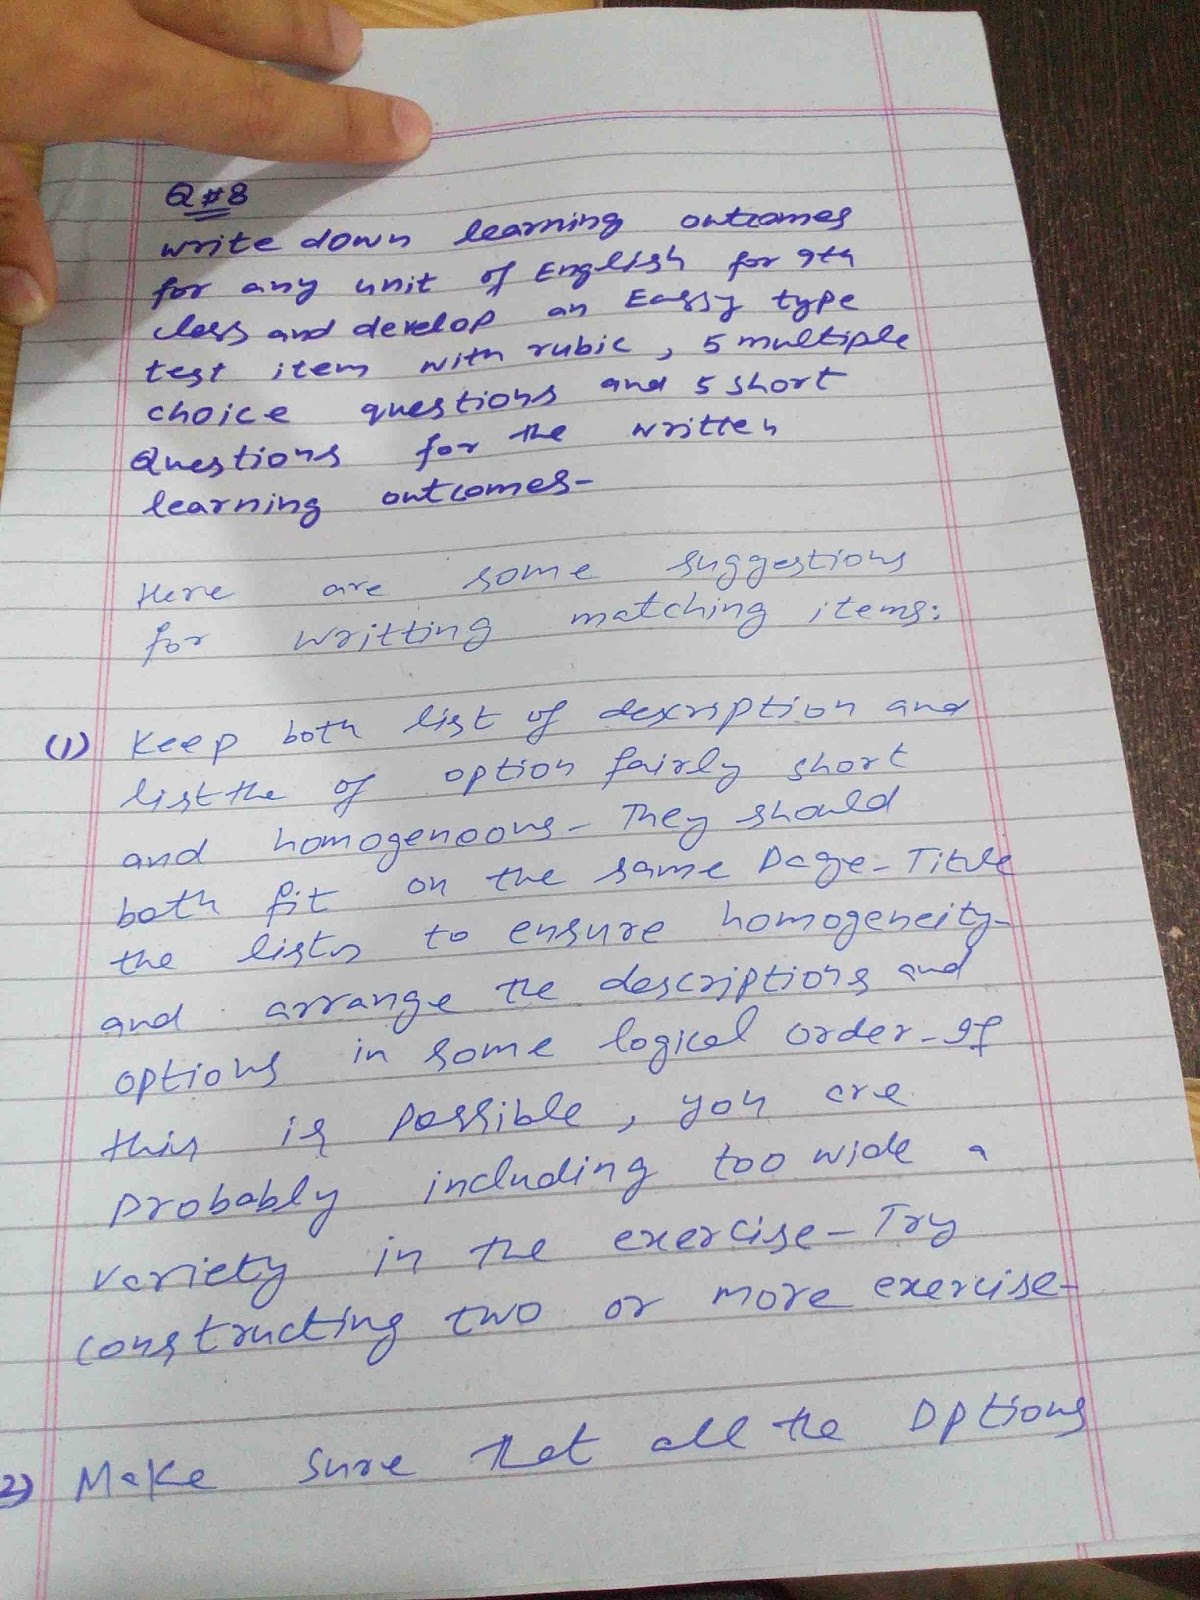 Q#8
write down learning outcomes
for any unit of English for 9th
class and develop an Eassy type
test item with rubic, 5 multiple
choice questions and 5 short
Questions for the written
learning outcomes-
Here are some suggestions
for writting matching items:
(1) Keep both list of description and
list the of option fairly short
and homogenoous- They should
both fit on the same Page- Titule
the lists to ensure homogeneity-
and arrange the descriptions and
options in some logical order- If
this is possible, you are
probably including too wide a
variety in the exercise- Try
constructing two or more exercise-
2) Make sure that all the Options